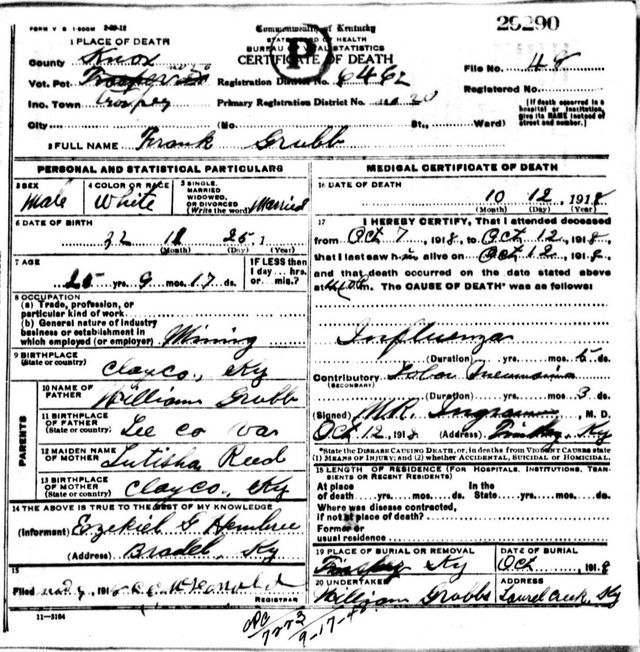 FORM V S 1-500M 2-20-12
Commonwealth of Kentucky
29290
STATE BOARD OF HEALTH
BUREAU VITAL STATISTICS
CERTIFICATE OF DEATH
P
1 PLACE OF DEATH
County Knox
Vot. Pct
Inc. Town
City
Registration District No. 6462
Primary Registration District No. 20
(No. St., Ward)
File No. 48
Registered No.
(If death occurred in a hospital or institution, give its NAME instead of street and number.)
2 FULL NAME Frank Grubb
PERSONAL AND STATISTICAL PARTICULARS
3 SEX
Male
4 COLOR OR RACE
White
5 SINGLE,
MARRIED
WIDOWED,
OR DIVORCED
(Write the word) Married
6 DATE OF BIRTH
(Month) (Day) (Year)
7 AGE
25 yrs. 9 mos. 17 ds.
IF LESS than
1 day.... hrs.
or min.?
8 OCCUPATION
(a) Trade, profession, or
particular kind of work
(b) General nature of industry
business or establishment in
which employed (or employer) Mining
9 BIRTHPLACE
(State or country) Clay co, Ky
PARENTS
10 NAME OF
FATHER William Grubb
11 BIRTHPLACE
OF FATHER
(State or country) Lee co
12 MAIDEN NAME
OF MOTHER Reed
13 BIRTHPLACE
OF MOTHER
(State or country) Clay co, Ky
14 THE ABOVE IS TRUE TO THE BEST OF MY KNOWLEDGE
(Informant) Ezekiel G
(Address) Ky
15
Filed 191
REGISTRAR
11-3184
MEDICAL CERTIFICATE OF DEATH
16 DATE OF DEATH
10 12, 1918
(Month) (Day) (Year)
17 I HEREBY CERTIFY, That I attended deceased
from Oct 7, 1918, to Oct 12, 1918,
that I last saw him alive on Oct 12, 1918,
and that death occurred on the date stated above
at m. The CAUSE OF DEATH* was as follows:
Influenza
(Duration) yrs. mos. 5 ds.
Contributory Lobar Pneumonia
(SECONDARY)
(Duration) yrs. mos. 3 ds.
(Signed) M.R. Ingram, M. D.
Oct 12, 1918 (Address) Ky
*State the DISEASE CAUSING DEATH, or, in deaths from VIOLENT CAUSES state
(1) MEANS OF INJURY; and (2) whether ACCIDENTAL, SUICIDAL or HOMICIDAL.
18 LENGTH OF RESIDENCE (FOR HOSPITALS, INSTITUTIONS, TRANSIENTS OR RECENT RESIDENTS)
At place In the
of death yrs. mos. ds. State yrs. mos. ds.
Where was disease contracted,
if not at place of death?
Former or
usual residence
19 PLACE OF BURIAL OR REMOVAL
Ky
DATE OF BURIAL
Oct 1918
20 UNDERTAKER
William Grubbs
ADDRESS
Laurel Creek, Ky
7223